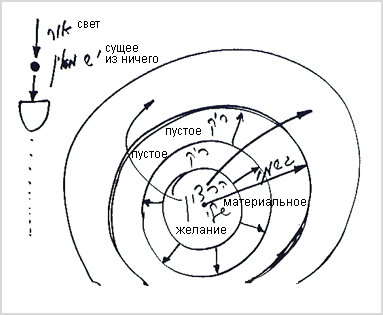 אור
свет
יש מאין
сущее
из ничего
ריק
пустое
ריק
пустое
הרצון
материальное
желание